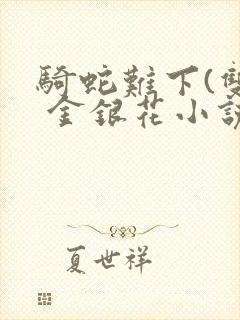 騎蛇難下(雙
金銀花小說
夏世祥